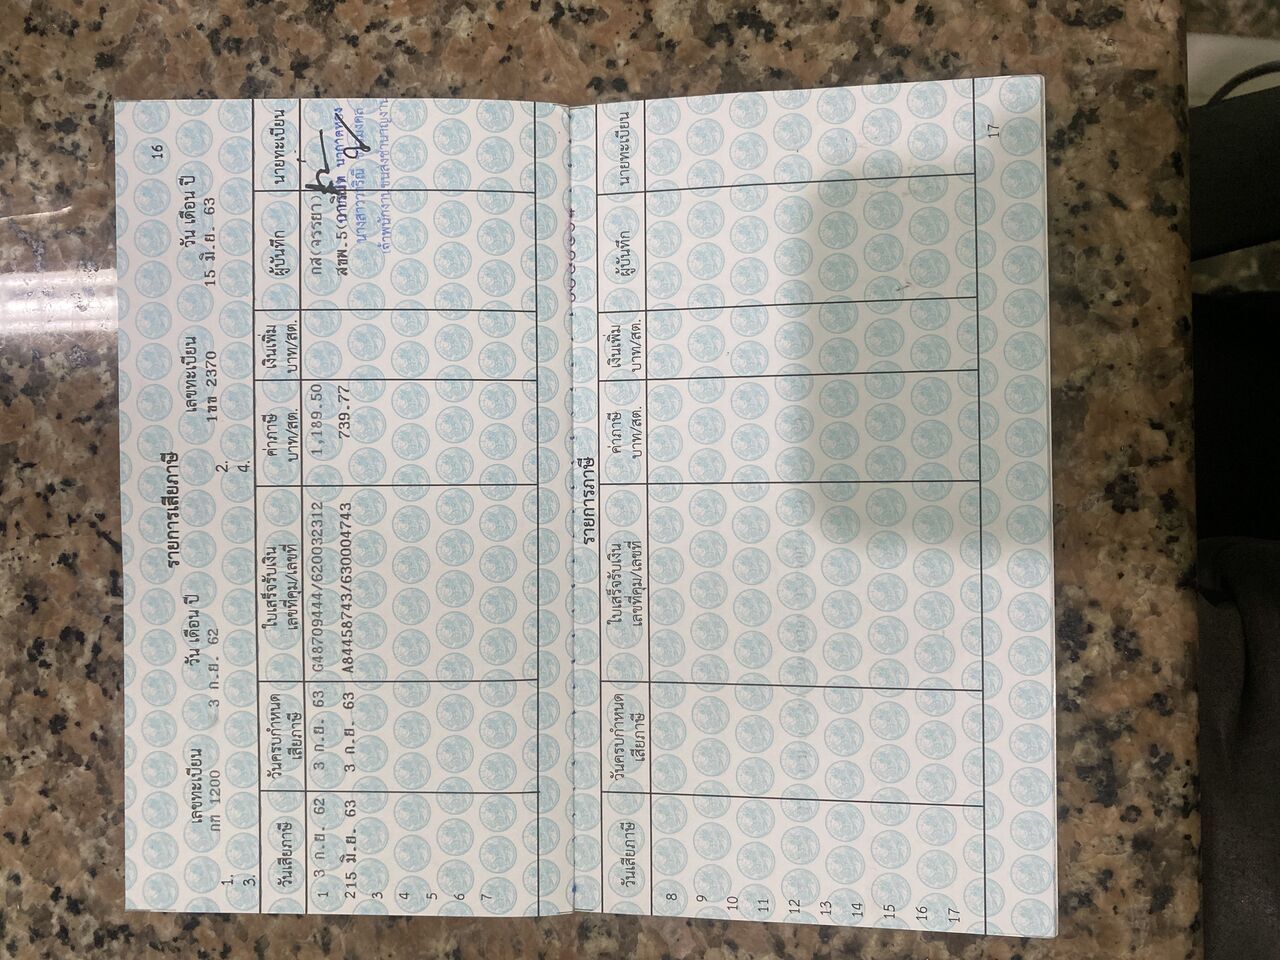 16
รายการเสียภาษี
เลขทะเบียน วัน เดือน ปี เลขทะเบียน วัน เดือน ปี
1. กท 1200 3 ก.ย. 62 2. 1ขข 2370 15 มิ.ย. 63
3. 4.
วันเสียภาษี วันครบกำหนด เสียภาษี ใบเสร็จรับเงิน เลขที่คุม/เลขที่ ค่าภาษี บาท/สต. เงินเพิ่ม บาท/สต. ผู้บันทึก นายทะเบียน
1 3 ก.ย. 62 3 ก.ย. 63 G48709444/620032312 1,189.50 กส(จรรยา)
215 มิ.ย. 63 3 ก.ย. 63 A84458743/630004743 739.77 สขพ.5(
3 นางสาววาริณี
4 เจ้าพนักงานขนส่งชำนาญงาน
5
6
7
รายการภาษี
วันเสียภาษี วันครบกำหนด เสียภาษี ใบเสร็จรับเงิน เลขที่คุม/เลขที่ ค่าภาษี บาท/สต. เงินเพิ่ม บาท/สต. ผู้บันทึก นายทะเบียน
8
9
10
11
12
13
14
15
16
17
17